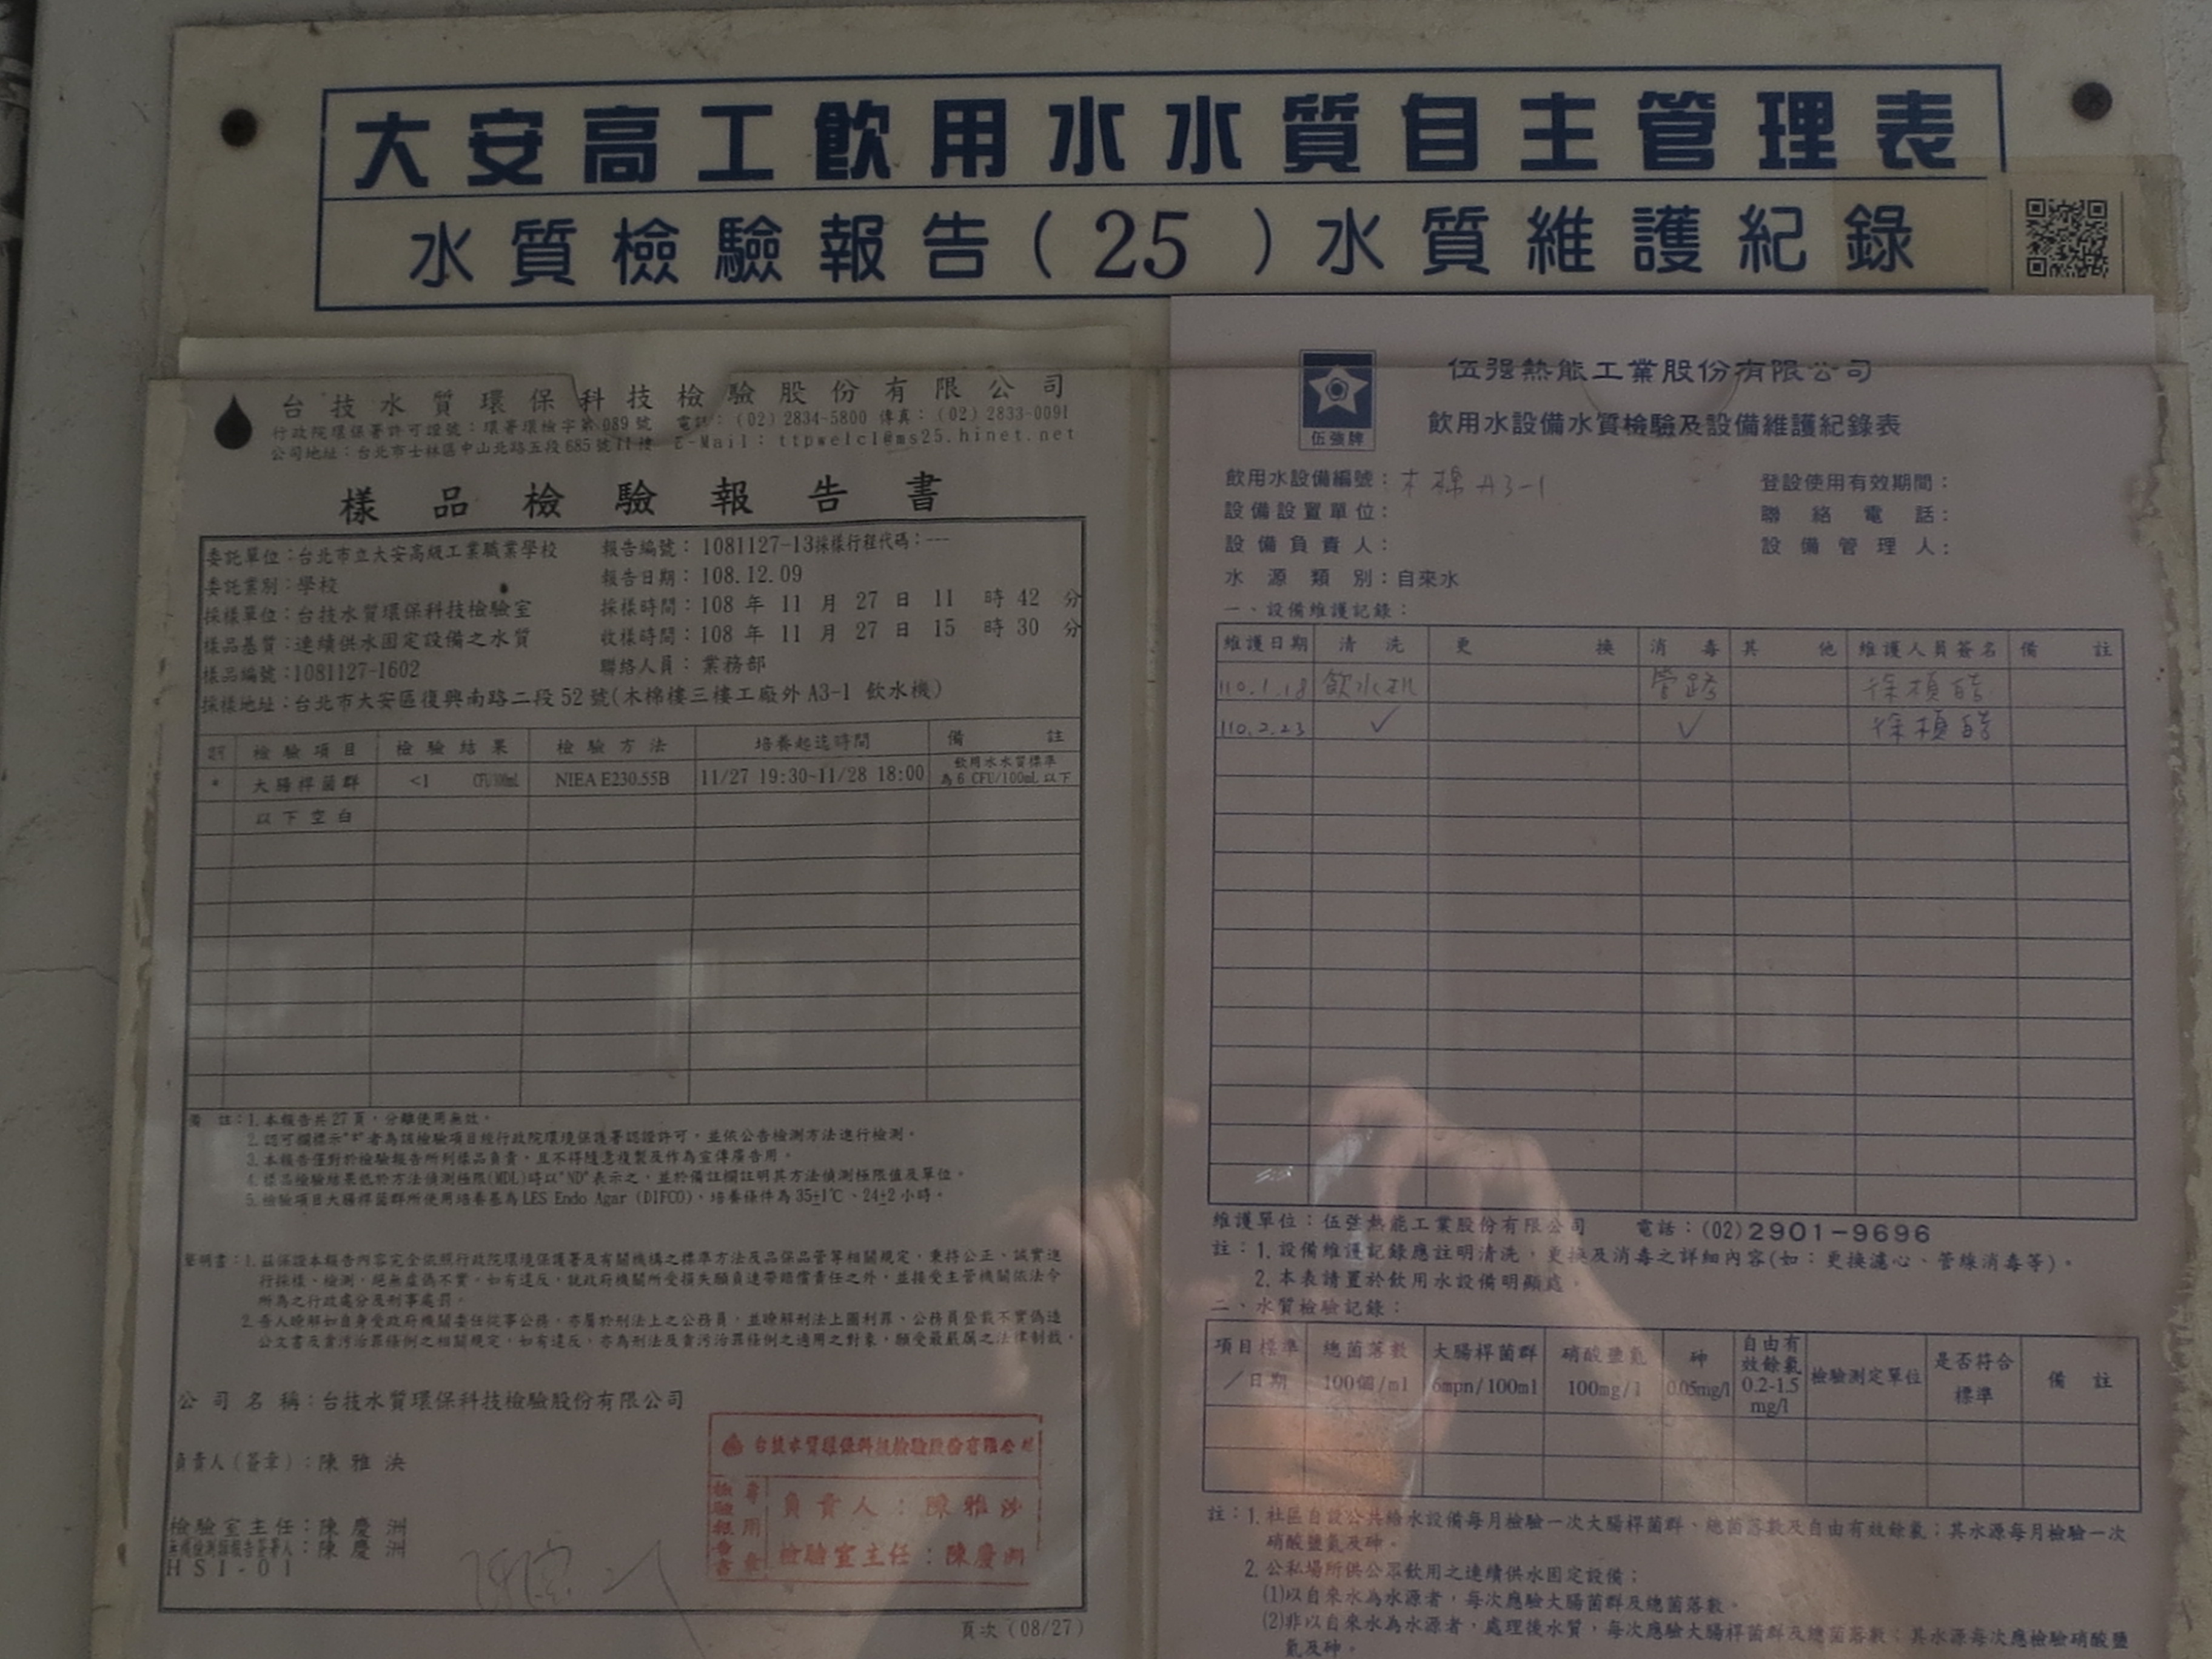 大安高工飲用水水質自主管理表
水質檢驗報告(25)水質維護紀錄
台技水質環保科技檢驗股份有限公司
行政院環保署許可證號：環署環檢字第089號 電話：(02)2834-5800 傳真：(02)2833-0091
公司地址：台北市士林區中山北路五段685號11樓 E-Mail：ttpwelcl@ms25.hinet.net
樣品檢驗報告書
委託單位：台北市立大安高級工業職業學校 報告編號：1081127-13採樣行程代碼：---
委託業別：學校 報告日期：108.12.09
採樣單位：台技水質環保科技檢驗室 採樣時間：108 年 11 月 27 日 11 時 42 分
樣品基質：連續供水固定設備之水質 收樣時間：108 年 11 月 27 日 15 時 30 分
樣品編號：1081127-1602 聯絡人員：業務部
採樣地址：台北市大安區復興南路二段52號(木棉樓三樓工廠外A3-1 飲水機)
檢驗項目 檢驗結果 檢驗方法 培養起迄時間 備註
* 大腸桿菌群 <1 CFU/100mL NIEA E230.55B 11/27 19:30~11/28 18:00 飲用水水質標準
為 6 CFU/100mL 以下
以下空白
備 註：1.本報告共27頁，分離使用無效。
2.認可欄標示"*"者為該檢驗項目經行政院環境保護署認證許可，並依公告檢測方法進行檢測。
3.本報告僅對於檢驗報告所列樣品負責，且不得隨意複製及作為宣傳廣告用。
4.樣品檢驗結果低於方法偵測極限(MDL)時以"ND"表示之，並於備註欄註明其方法偵測極限值及單位。
5.檢驗項目大腸桿菌群所使用培養基為LES Endo Agar (DIFCO)，培養條件為35±1℃、24±2小時。
聲明書：1.茲保證本報告內容完全依照行政院環境保護署及有關機構之標準方法及品保品管等相關規定，秉持公正、誠實進
行採樣、檢測，絕無虛偽不實，如有違反，就政府機關所受損失願負連帶賠償責任之外，並接受主管機關依法令
所為之行政處分及刑事處罰。
2.吾人瞭解如自身受政府機關委任從事公務，亦屬於刑法上之公務員，並瞭解刑法上圖利罪、公務員登載不實偽造
公文書及貪污治罪條例之相關規定，如有違反，亦為刑法及貪污治罪條例之適用之對象，願受最嚴厲之法律制裁。
公司名稱：台技水質環保科技檢驗股份有限公司
負責人(簽章)：陳雅泱
檢驗室主任：陳慶洲
無機檢測類報告簽署人：陳慶洲
HSI-01
台技水質環保科技檢驗股份有限公司
檢驗報告書專用章
負責人：陳雅泱
檢驗室主任：陳慶洲
頁次(08/27)
伍強牌
伍強熱能工業股份有限公司
飲用水設備水質檢驗及設備維護紀錄表
飲用水設備編號：木棉A3-1 登設使用有效期間：
設備設置單位： 聯絡電話：
設備負責人： 設備管理人：
水源類別：自來水
一、設備維護記錄：
維護日期 清洗 更換 消毒 其他 維護人員簽名 備註
110.1.18 飲水机 管路
110.2.23 ✓ ✓
維護單位：伍強熱能工業股份有限公司 電話：(02)2901-9696
註：1.設備維護記錄應註明清洗，更換及消毒之詳細內容(如：更換濾心、管線消毒等)。
2.本表請置於飲用水設備明顯處。
二、水質檢驗記錄：
項目標準／日期 總菌落數100個/ml 大腸桿菌群6mpn/100ml 硝酸鹽氮100mg/l 砷0.05mg/l 自由有效餘氯0.2-1.5mg/l 檢驗測定單位 是否符合標準 備註
註：1.社區自設公共給水設備每月檢驗一次大腸桿菌群、總菌落數及自由有效餘氯；其水源每月檢驗一次
硝酸鹽氮及砷。
2.公私場所供公眾飲用之連續供水固定設備；
(1)以自來水為水源者，每次應驗大腸菌群及總菌落數。
(2)非以自來水為水源者，處理後水質，每次應驗大腸桿菌群及總菌落數；其水源每次應檢驗硝酸鹽
氮及砷。